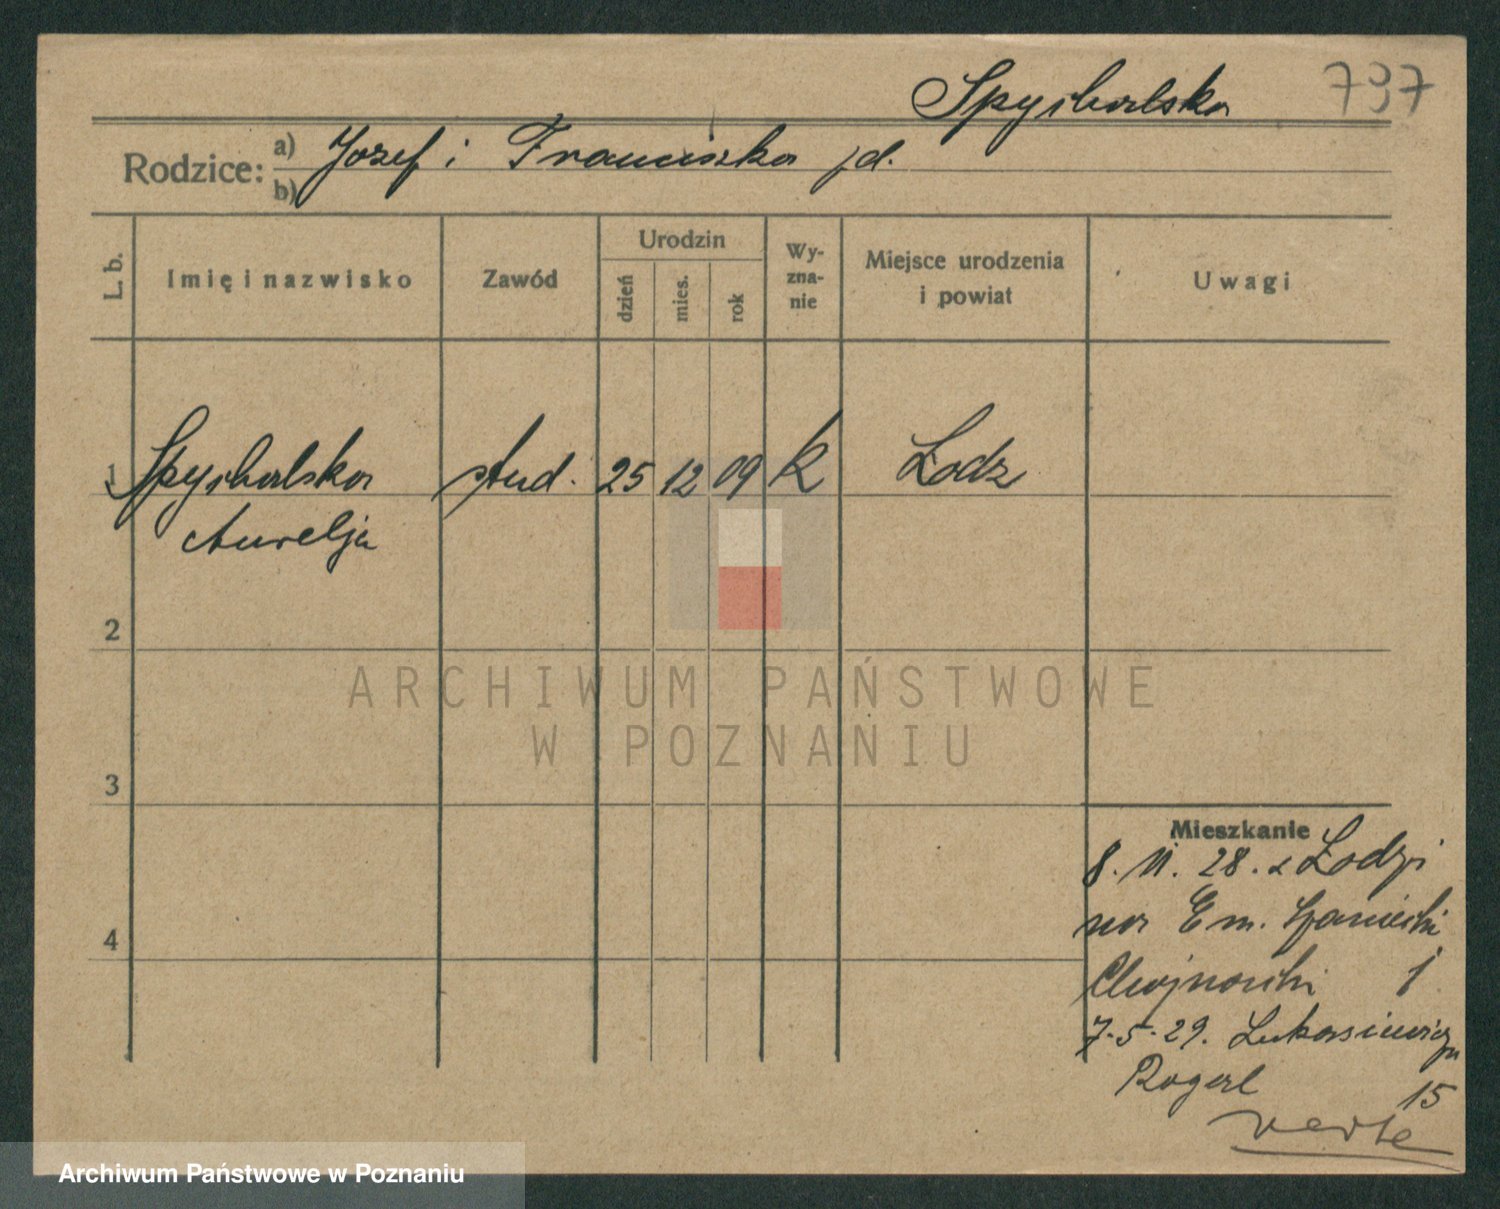 Spychalska 737
Rodzice: a) Jozef i Franciszka jd.
b)
L. b. Imię i nazwisko Zawód Urodzin dzień mies. rok Wy-zna-nie Miejsce urodzenia i powiat Uwagi
1 Spychalska stud. 25 12 09 k Lodz
Aurelja
2
ARCHIWUM PAŃSTWOWE
W POZNANIU
3
Mieszkanie
8. 11. 28. z Łodzi
na Em. Sczaniecki
4
Chojnacki 1
7.5.29. Lukasiewicza
Rogal 15
verte
Archiwum Państwowe w Poznaniu